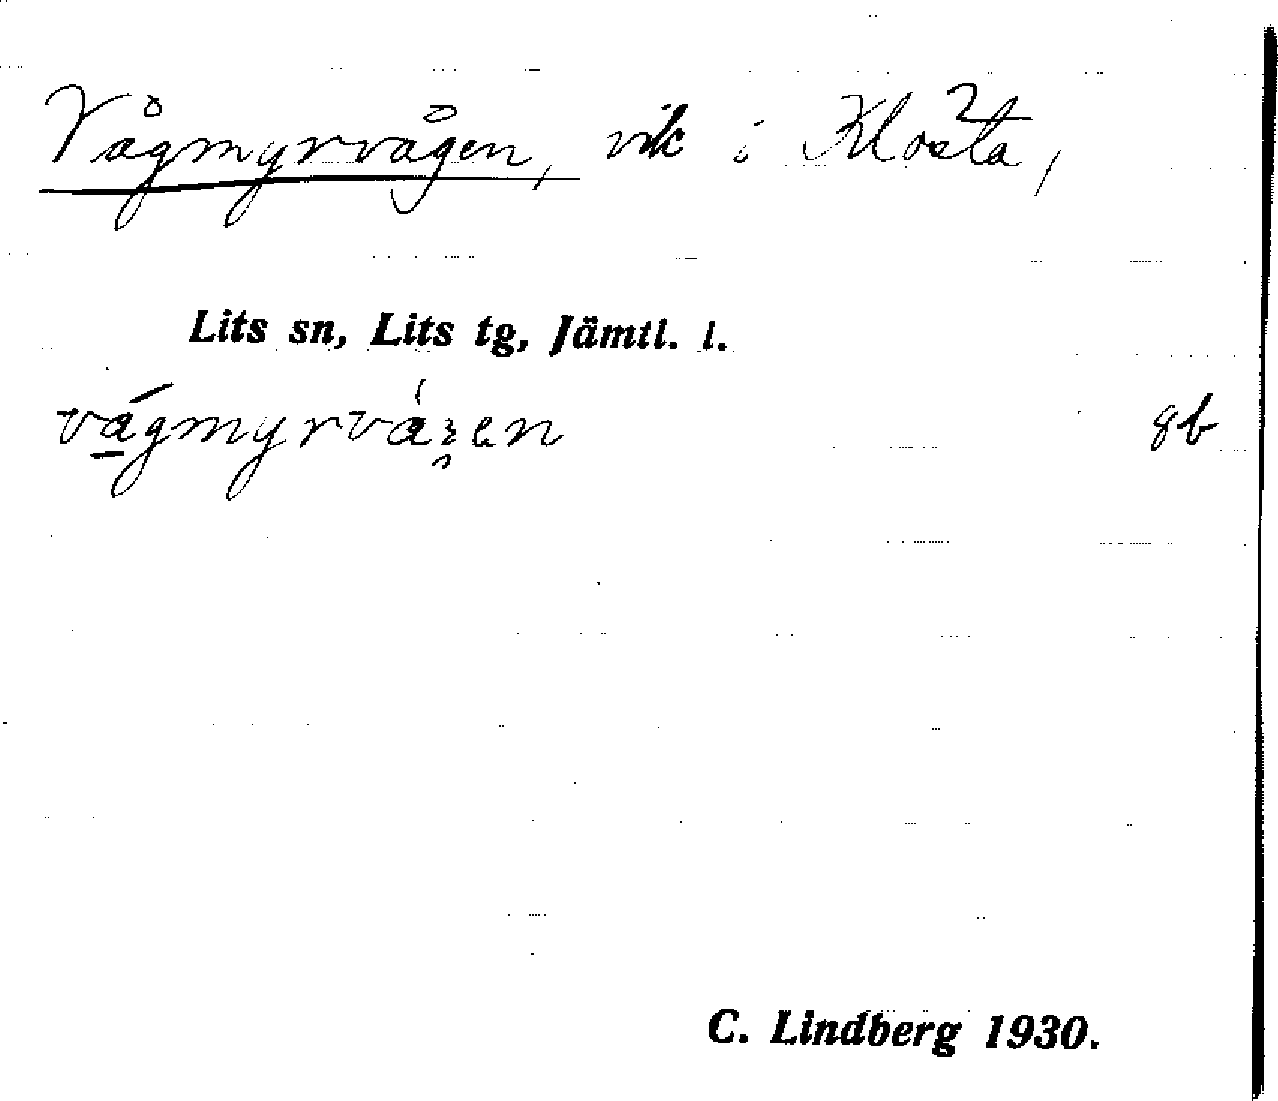 Vågmyrvågen, vik i Klösta,
Lits sn, Lits tg, Jämtl. l.
vágmyrvá̀ʒen 8b
C. Lindberg 1930.